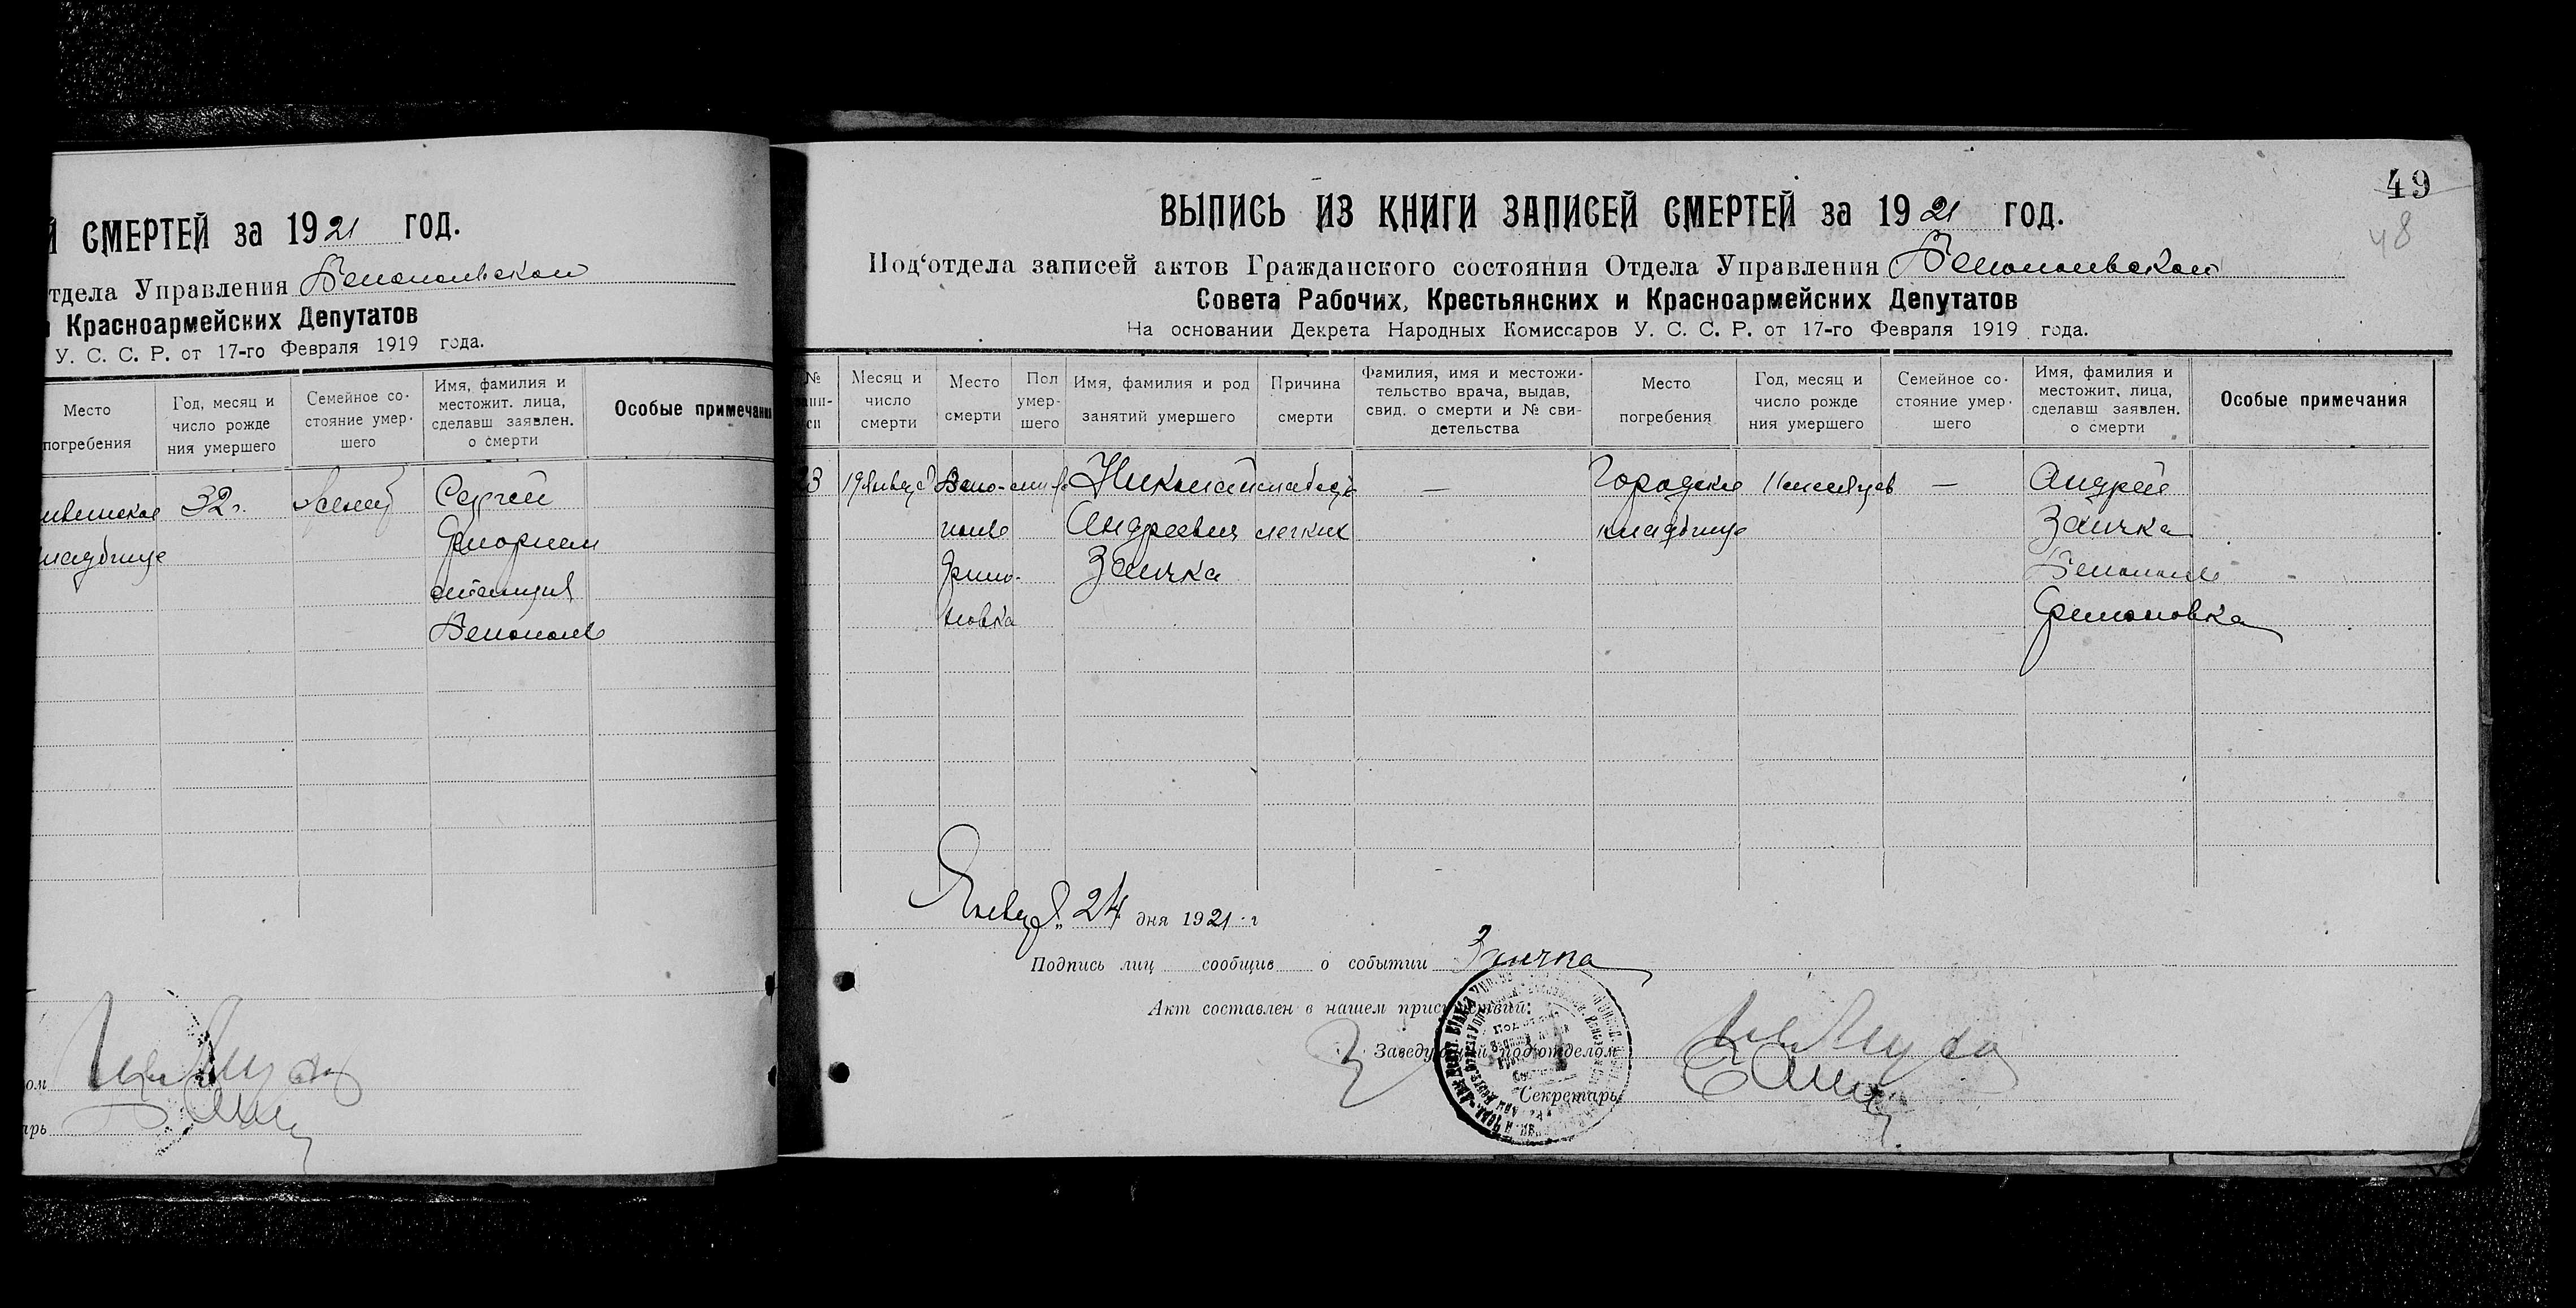 Й СМЕРТЕЙ за 1921 год.
тдела Управления Белопольской
и Красноармейских Депутатов
У. С. С. Р. от 17-го Февраля 1919 года.
Место погребения
Год, месяц и число рожде ния умершего
Семейное со- стояние умер- шего
Имя, фамилия и местожит. лица, сделавш заявлен. о смерти
Особые примечания
32 г.
женат
Сергей
станция
Белополье
49
48
ВЫПИСЬ ИЗ КНИГИ ЗАПИСЕЙ СМЕРТЕЙ за 1921 год.
Под'отдела записей актов Гражданского состояния Отдела Управления Белопольской
Совета Рабочих, Крестьянских и Красноармейских Депутатов
На основании Декрета Народных Комиссаров У. С. С. Р. от 17-го Февраля 1919 года.
№
Месяц и число смерти
Место смерти
Пол умер- шего
Имя, фамилия и род занятий умершего
Причина смерти
Фамилия, имя и местожи- тельство врача, выдав, свид. о смерти и № сви- детельства
Место погребения
Год, месяц и число рожде ния умершего
Семейное со- стояние умер- шего
Имя, фамилия и местожит. лица, сделавш заявлен. о смерти
Особые примечания
3 19 Января Бело- Николай слабость — Городское 11 месяцев — Андрей
полье Андреевич легких кладбище Заичка
Фили- Заичка Белополье
повка Филиповка
Января 24 дня 1921 г
Подпись лиц сообщив о событии Заичка
Акт составлен в нашем присутствии:
Заведующий подотделом
Секретарь